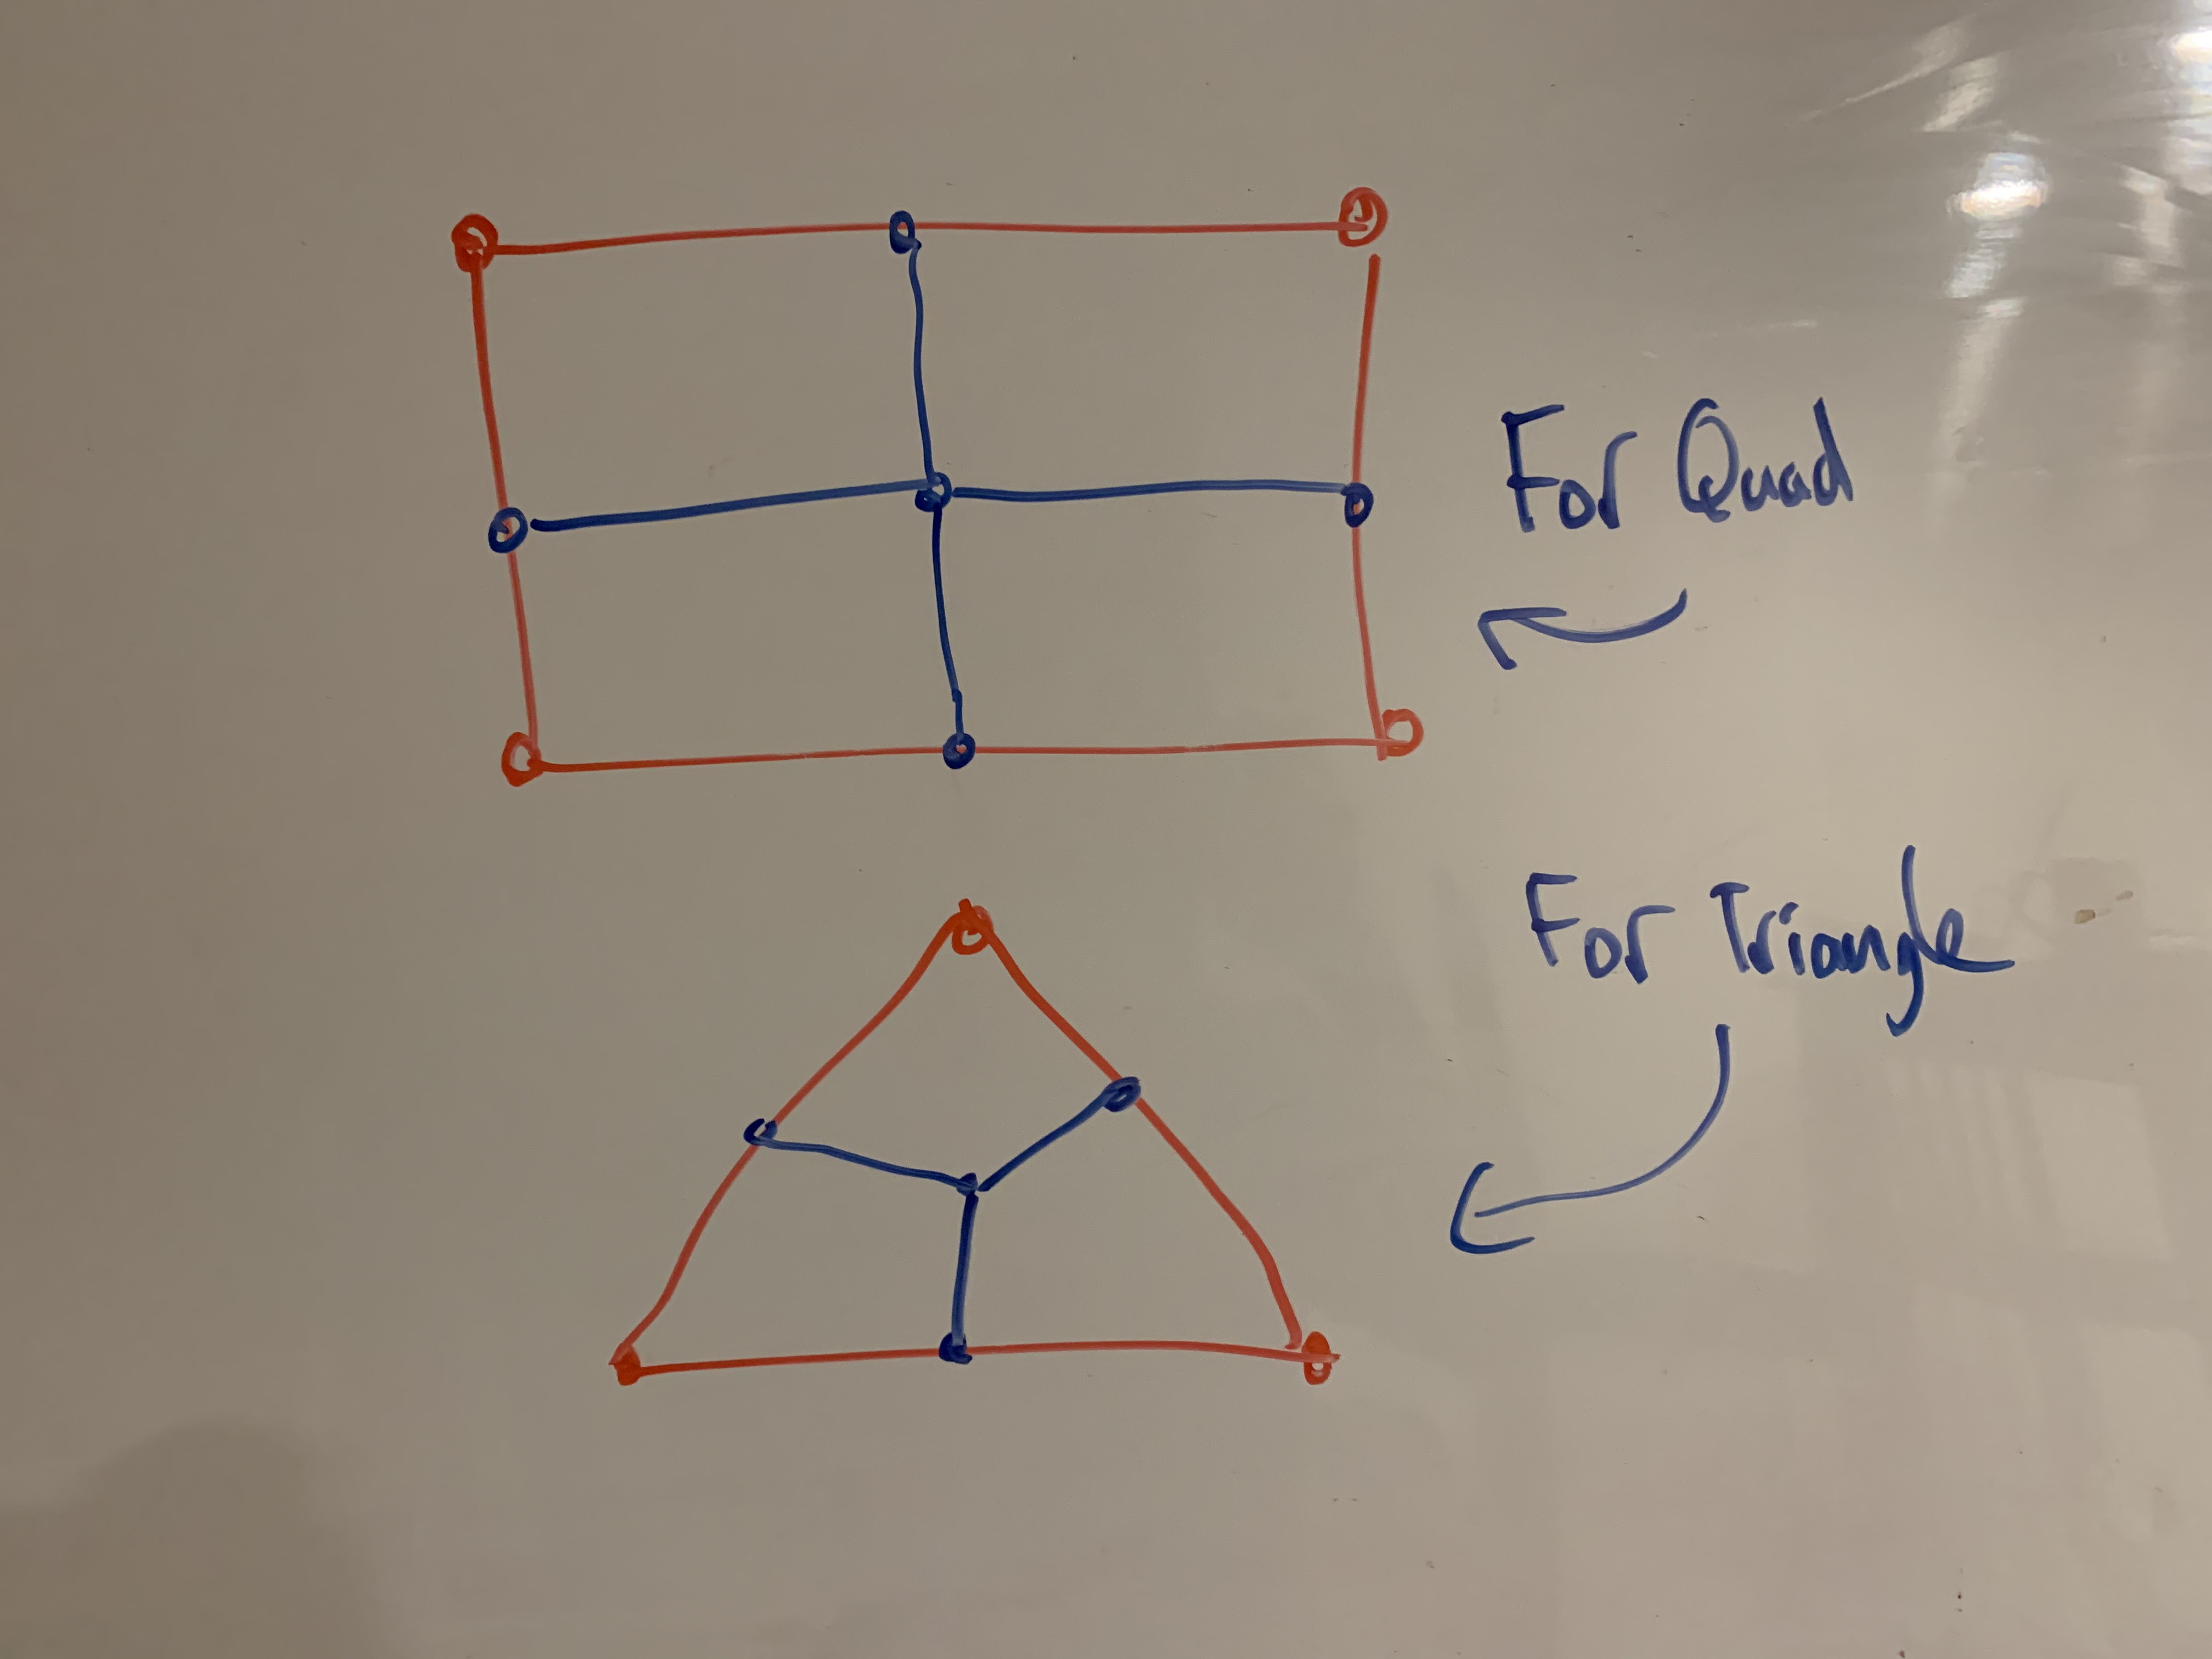 For Quad
For Triangle